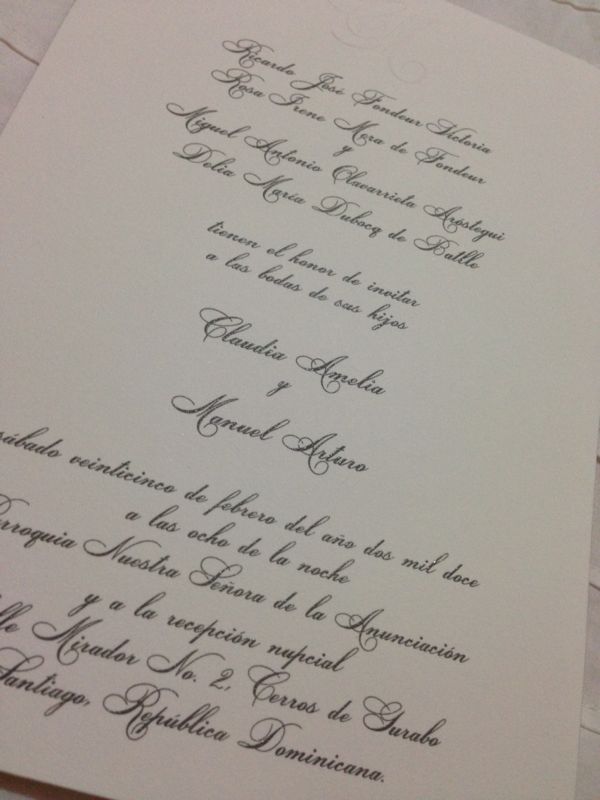 Ricardo José Fondeur Victoria
Rosa Irene Mera de Fondeur
y
Miguel Antonio Olavarrieta Aróstegui
Delia María Dubocq de Batlle
tienen el honor de invitar
a las bodas de sus hijos
Claudia Amelia
y
Manuel Arturo
sábado veinticinco de febrero del año dos mil doce
a las ocho de la noche
Nuestra Señora de la Anunciación
y a la recepción nupcial
Mirador No. 2, Cerros de Gurabo
Santiago, República Dominicana.